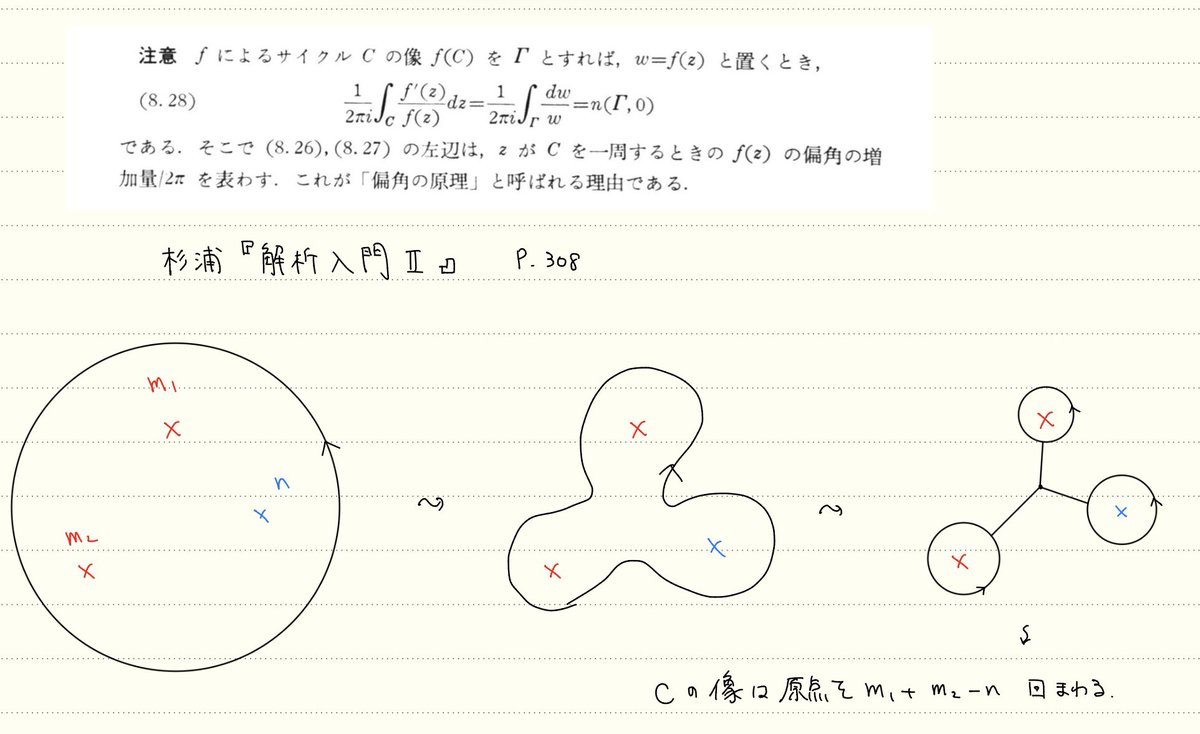 注意 f によるサイクル C の像 f(C) を Γ とすれば, w=f(z) と置くとき,
(8.28) 1/2πi ∫_C f′(z)/f(z) dz = 1/2πi ∫_Γ dw/w = n(Γ, 0)
である. そこで (8.26), (8.27) の左辺は, z が C を一周するときの f(z) の偏角の増
加量/2π を表わす. これが「偏角の原理」と呼ばれる理由である.
杉浦『解析入門 Ⅱ』 P. 308
m₁
×
n
×
m₂
×
×
×
×
×
×
×
C の像は原点を m₁ + m₂ − n 回まわる.